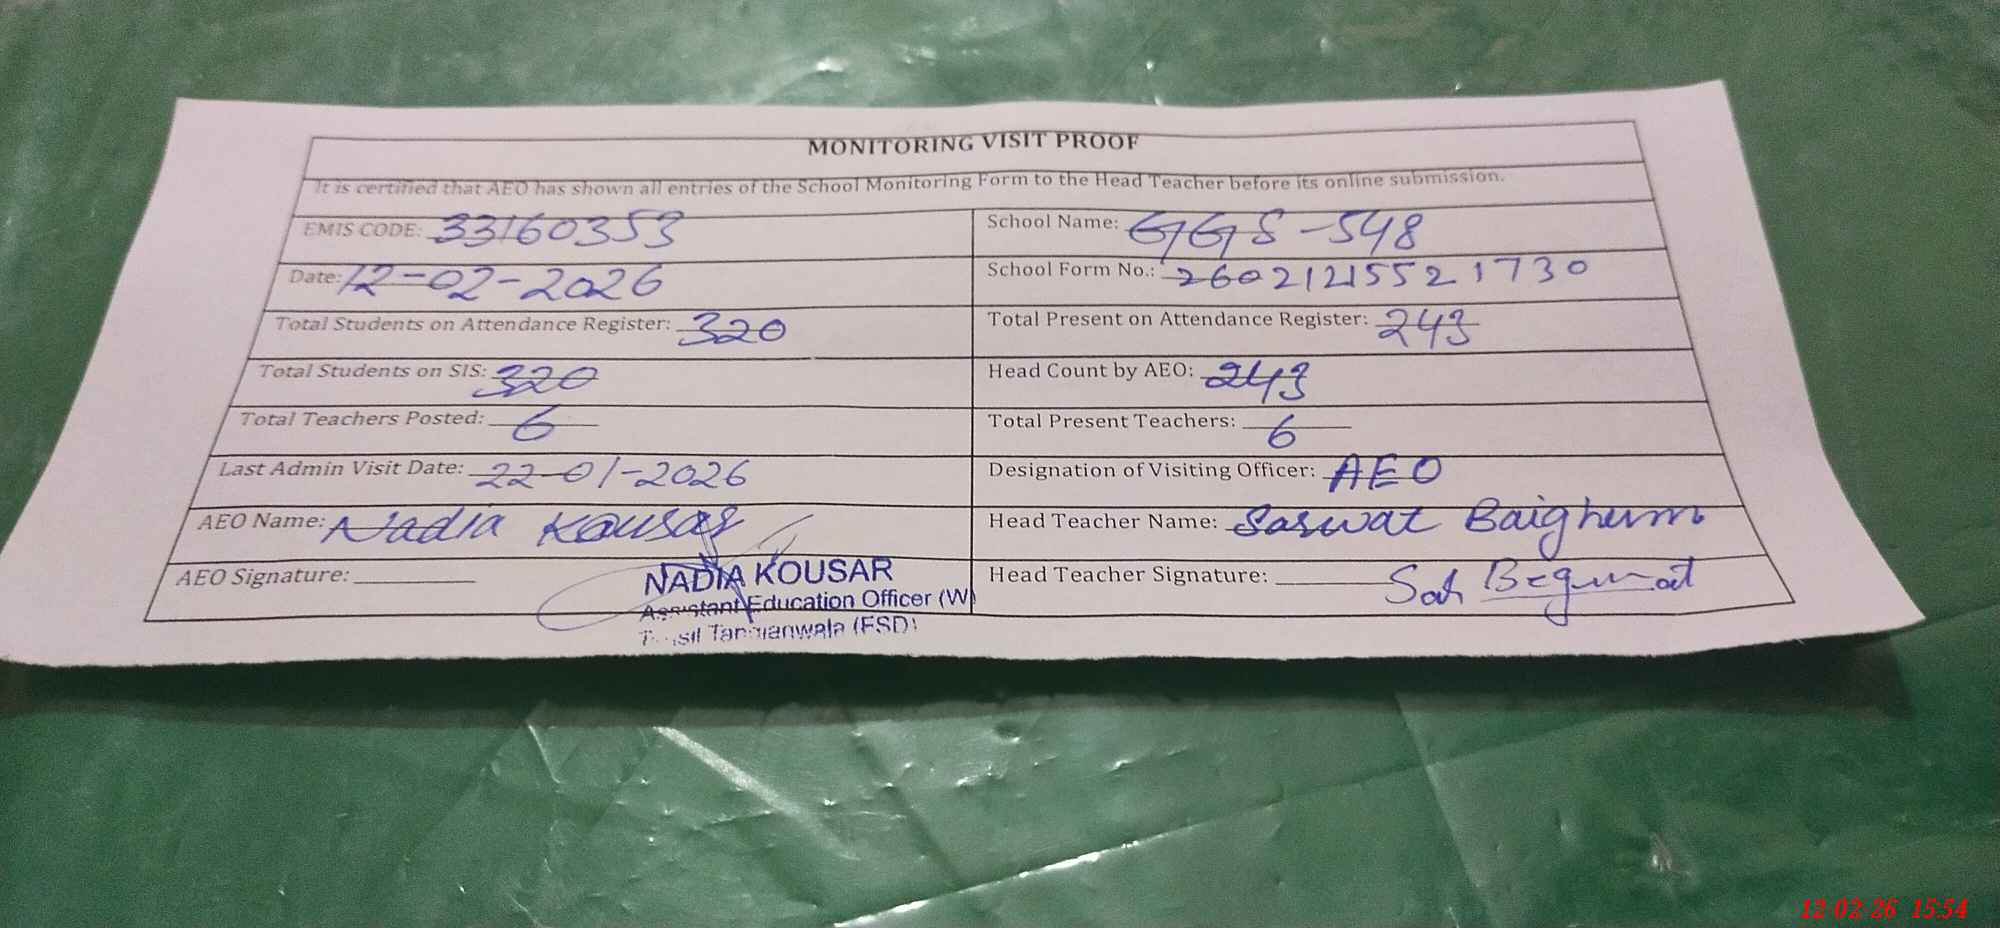 MONITORING VISIT PROOF
It is certified that AEO has shown all entries of the School Monitoring Form to the Head Teacher before its online submission.
EMIS CODE: 33160353 School Name: GGS-548
Date: 12-02-2026 School Form No.: 26021215521730
Total Students on Attendance Register: 320 Total Present on Attendance Register: 243
Total Students on SIS: 320 Head Count by AEO: 243
Total Teachers Posted: 6 Total Present Teachers: 6
Last Admin Visit Date: 22-01-2026 Designation of Visiting Officer: AEO
AEO Name: Nadia Kousar Head Teacher Name: Sarwat Baighum
AEO Signature: Head Teacher Signature:
NADIA KOUSAR
Assistant Education Officer (W)
(FSD)
12-02-26 15:54